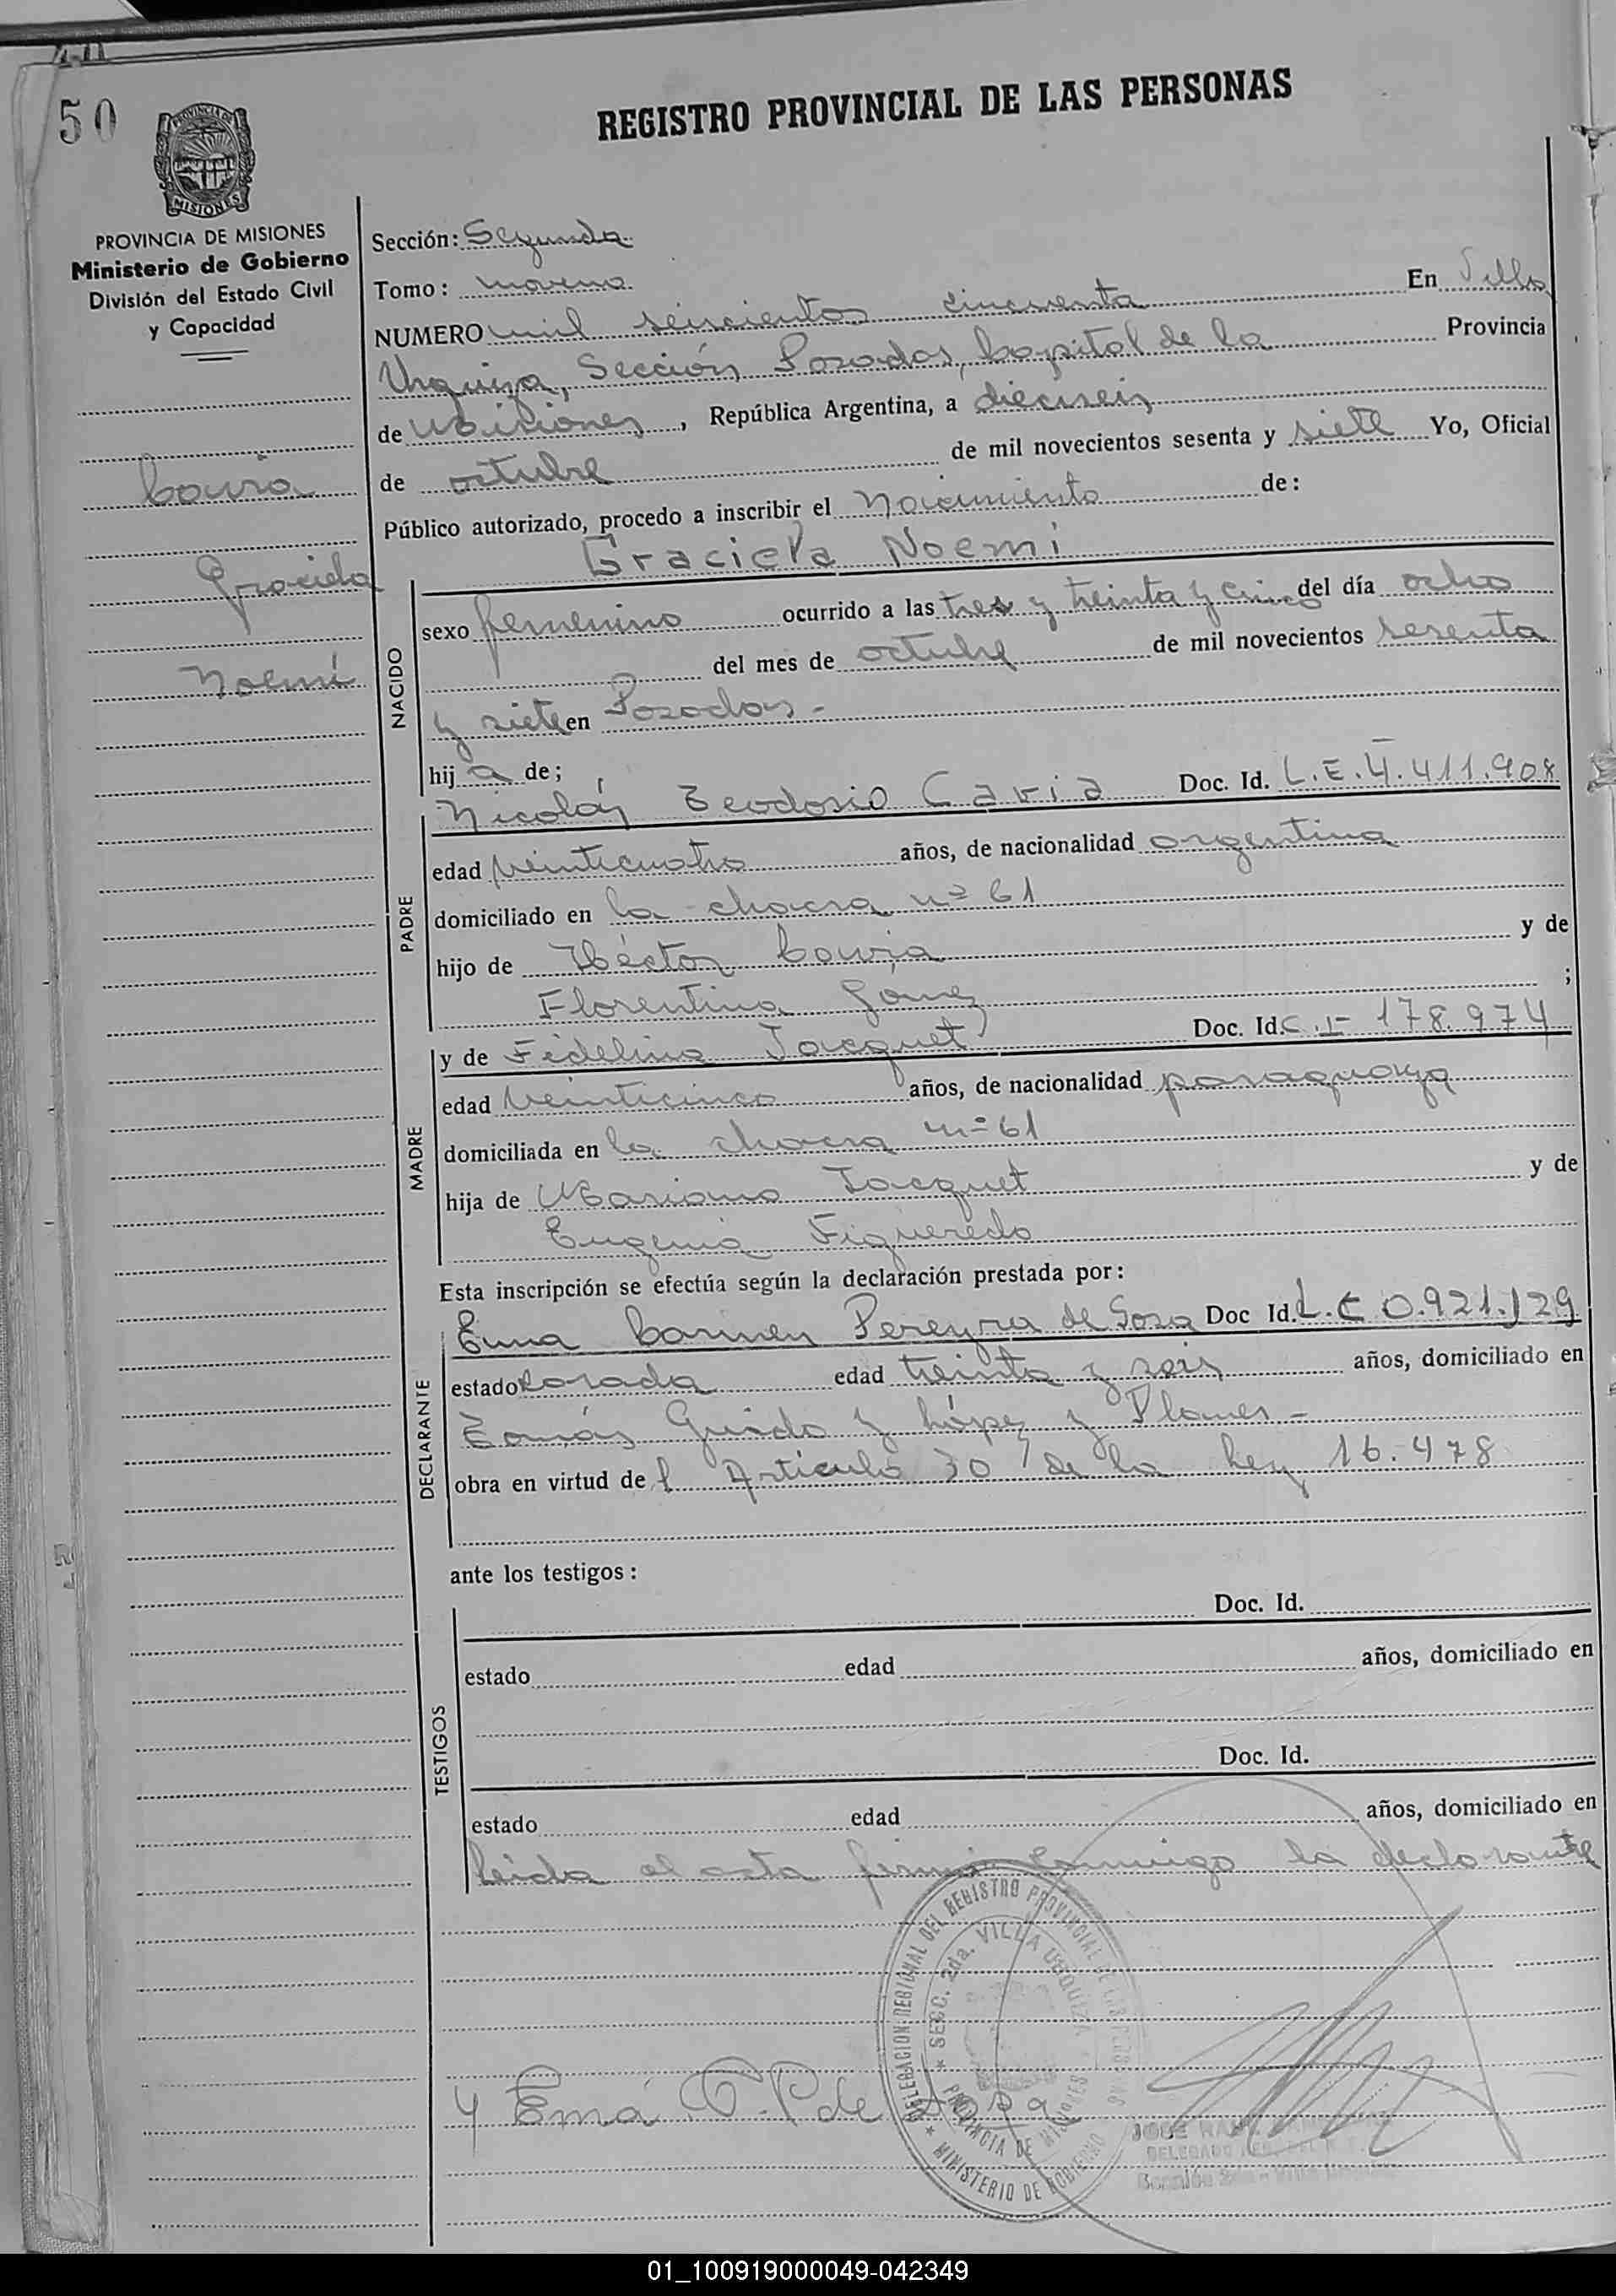 50
REGISTRO PROVINCIAL DE LAS PERSONAS
PROVINCIA DE
MISIONES
PROVINCIA DE MISIONES
Ministerio de Gobierno
División del Estado Civil
y Capacidad
Cavia
Graciela
Noemí
Sección: Segunda
Tomo: noveno
NUMERO mil seiscientos cincuenta En Villa
Urquiza, Sección Posadas, Capital de la Provincia
de Misiones, República Argentina, a dieciseis
de octubre de mil novecientos sesenta y siete Yo, Oficial
Público autorizado, procedo a inscribir el Nacimiento de:
Graciela Noemi
NACIDO
sexo femenino ocurrido a las tres y treinta y cinco del día ocho
del mes de octubre de mil novecientos sesenta
y siete en Posadas.-
hija de;
PADRE
Nicolás Teodosio Cavia Doc. Id. L.E. 4.411.908
edad veinticuatro años, de nacionalidad argentina
domiciliado en la chacra nº 61
hijo de Héctor Cavia y de
Florentina Gomez ;
MADRE
y de Fidelina Jacquet Doc. Id. C.I 178.974
edad veinticinco años, de nacionalidad paraguaya
domiciliada en la chacra nº 61
hija de Mariano Jacquet y de
Eugenia Figueredo
Esta inscripción se efectúa según la declaración prestada por:
DECLARANTE
Ema Carmen Pereyra de Sosa Doc Id. L.C 0.921.129
estado casada edad treinta y seis años, domiciliado en
Tomás Guido y López y Planes -
obra en virtud del Artículo 30 de la Ley 16.478
ante los testigos:
TESTIGOS
Doc. Id.
estado edad años, domiciliado en
Doc. Id.
estado edad años, domiciliado en
Leida el acta firma conmigo la declarante
DELEGACION REGIONAL DEL REGISTRO PROVINCIAL DE LAS PERSONAS
SECC. 2da. VILLA URQUIZA
PROVINCIA DE MISIONES
MINISTERIO DE GOBIERNO
Ema C. P de Sosa
JOSE
DELEGADO
Sección 2da - Villa Urquiza
01_100919000049-042349